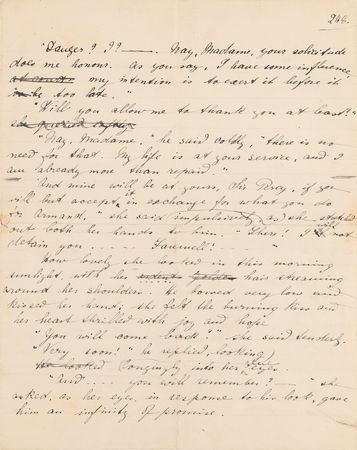 248.
"Danger? ??——. Nay, Madame, your solicitude
does me honour. As you say, I have some influence
at court: my intention is to exert it before it
be too late."
"Will you allow me to thank you at least?"
she queried softly.
"Nay, Madame." he said coldly, "there is no
need for that. My life is at your service, and I
am already more than repaid."
"And mine will be at yours, Sir Percy, if you
will but accept in exchange for what you do
to Armand," she said impulsively as she stretched
out both her hands to him. "There! I will not
detain you ..... Farewell! ——"
How lovely she looked in this morning
sunlight, with her ardent golden hair streaming
around her shoulders. He bowed very low and
kissed her hand; she felt the burning kiss and
her heart thrilled with joy and hope
"You will come back?" she said tenderly.
"Very soon!" he replied, looking
He looked longingly into her blue eyes.
"And .... you will remember? —" she
asked, as her eyes, in response to his look, gave
him an infinity of promise.